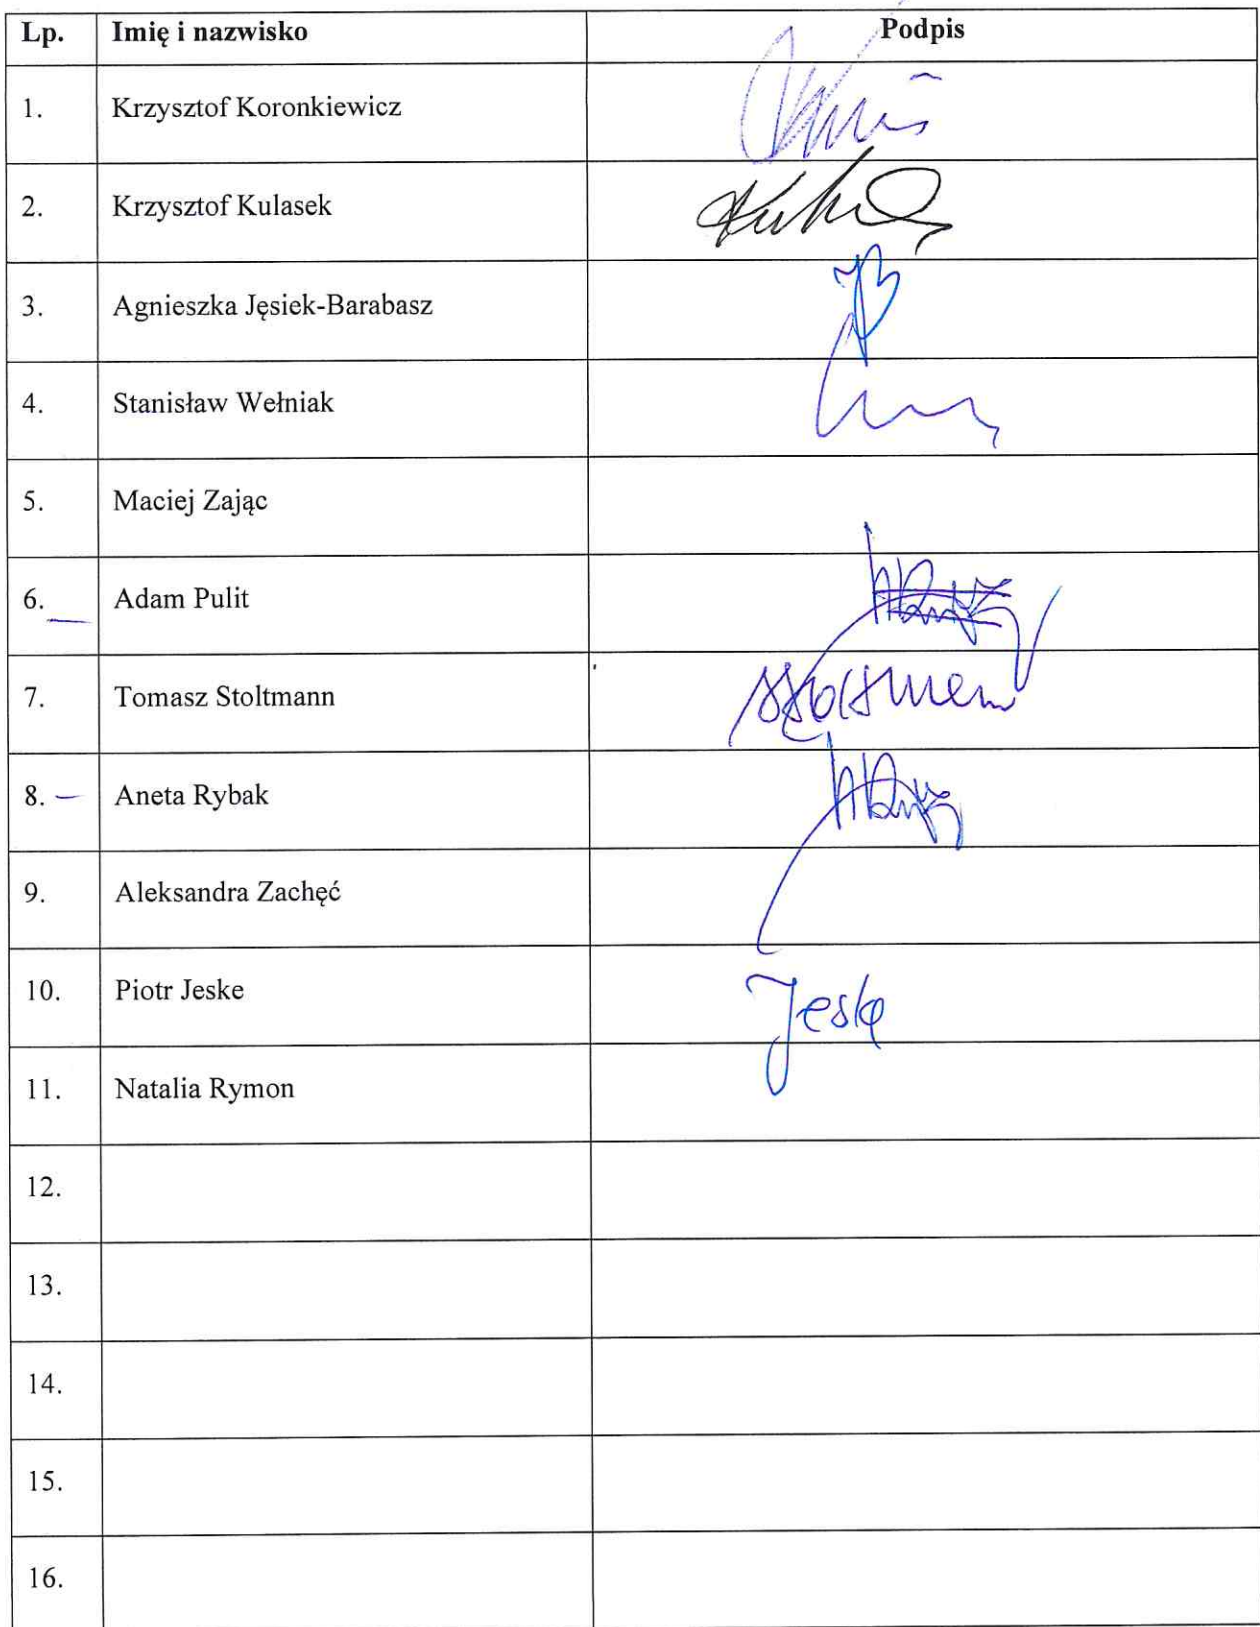 Lp. Imię i nazwisko Podpis
1. Krzysztof Koronkiewicz
2. Krzysztof Kulasek
3. Agnieszka Jęsiek-Barabasz
4. Stanisław Wełniak
5. Maciej Zając
6. Adam Pulit
7. Tomasz Stoltmann
8. Aneta Rybak
9. Aleksandra Zachęć
10. Piotr Jeske Jeske
11. Natalia Rymon
12.
13.
14.
15.
16.